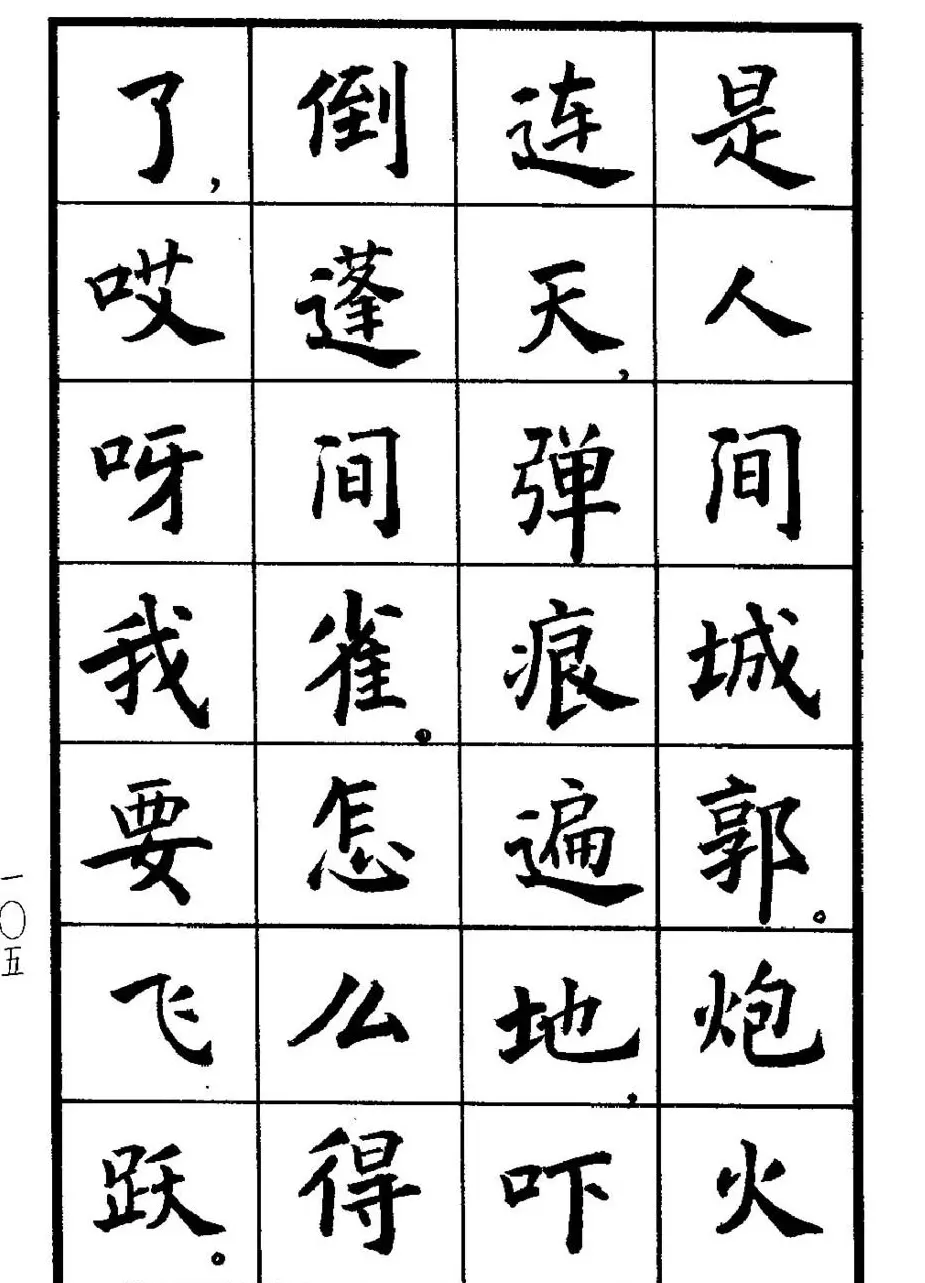 是人间城郭。炮火
连天，弹痕遍地，吓
倒蓬间雀。怎么得
了，哎呀我要飞跃。
一〇五